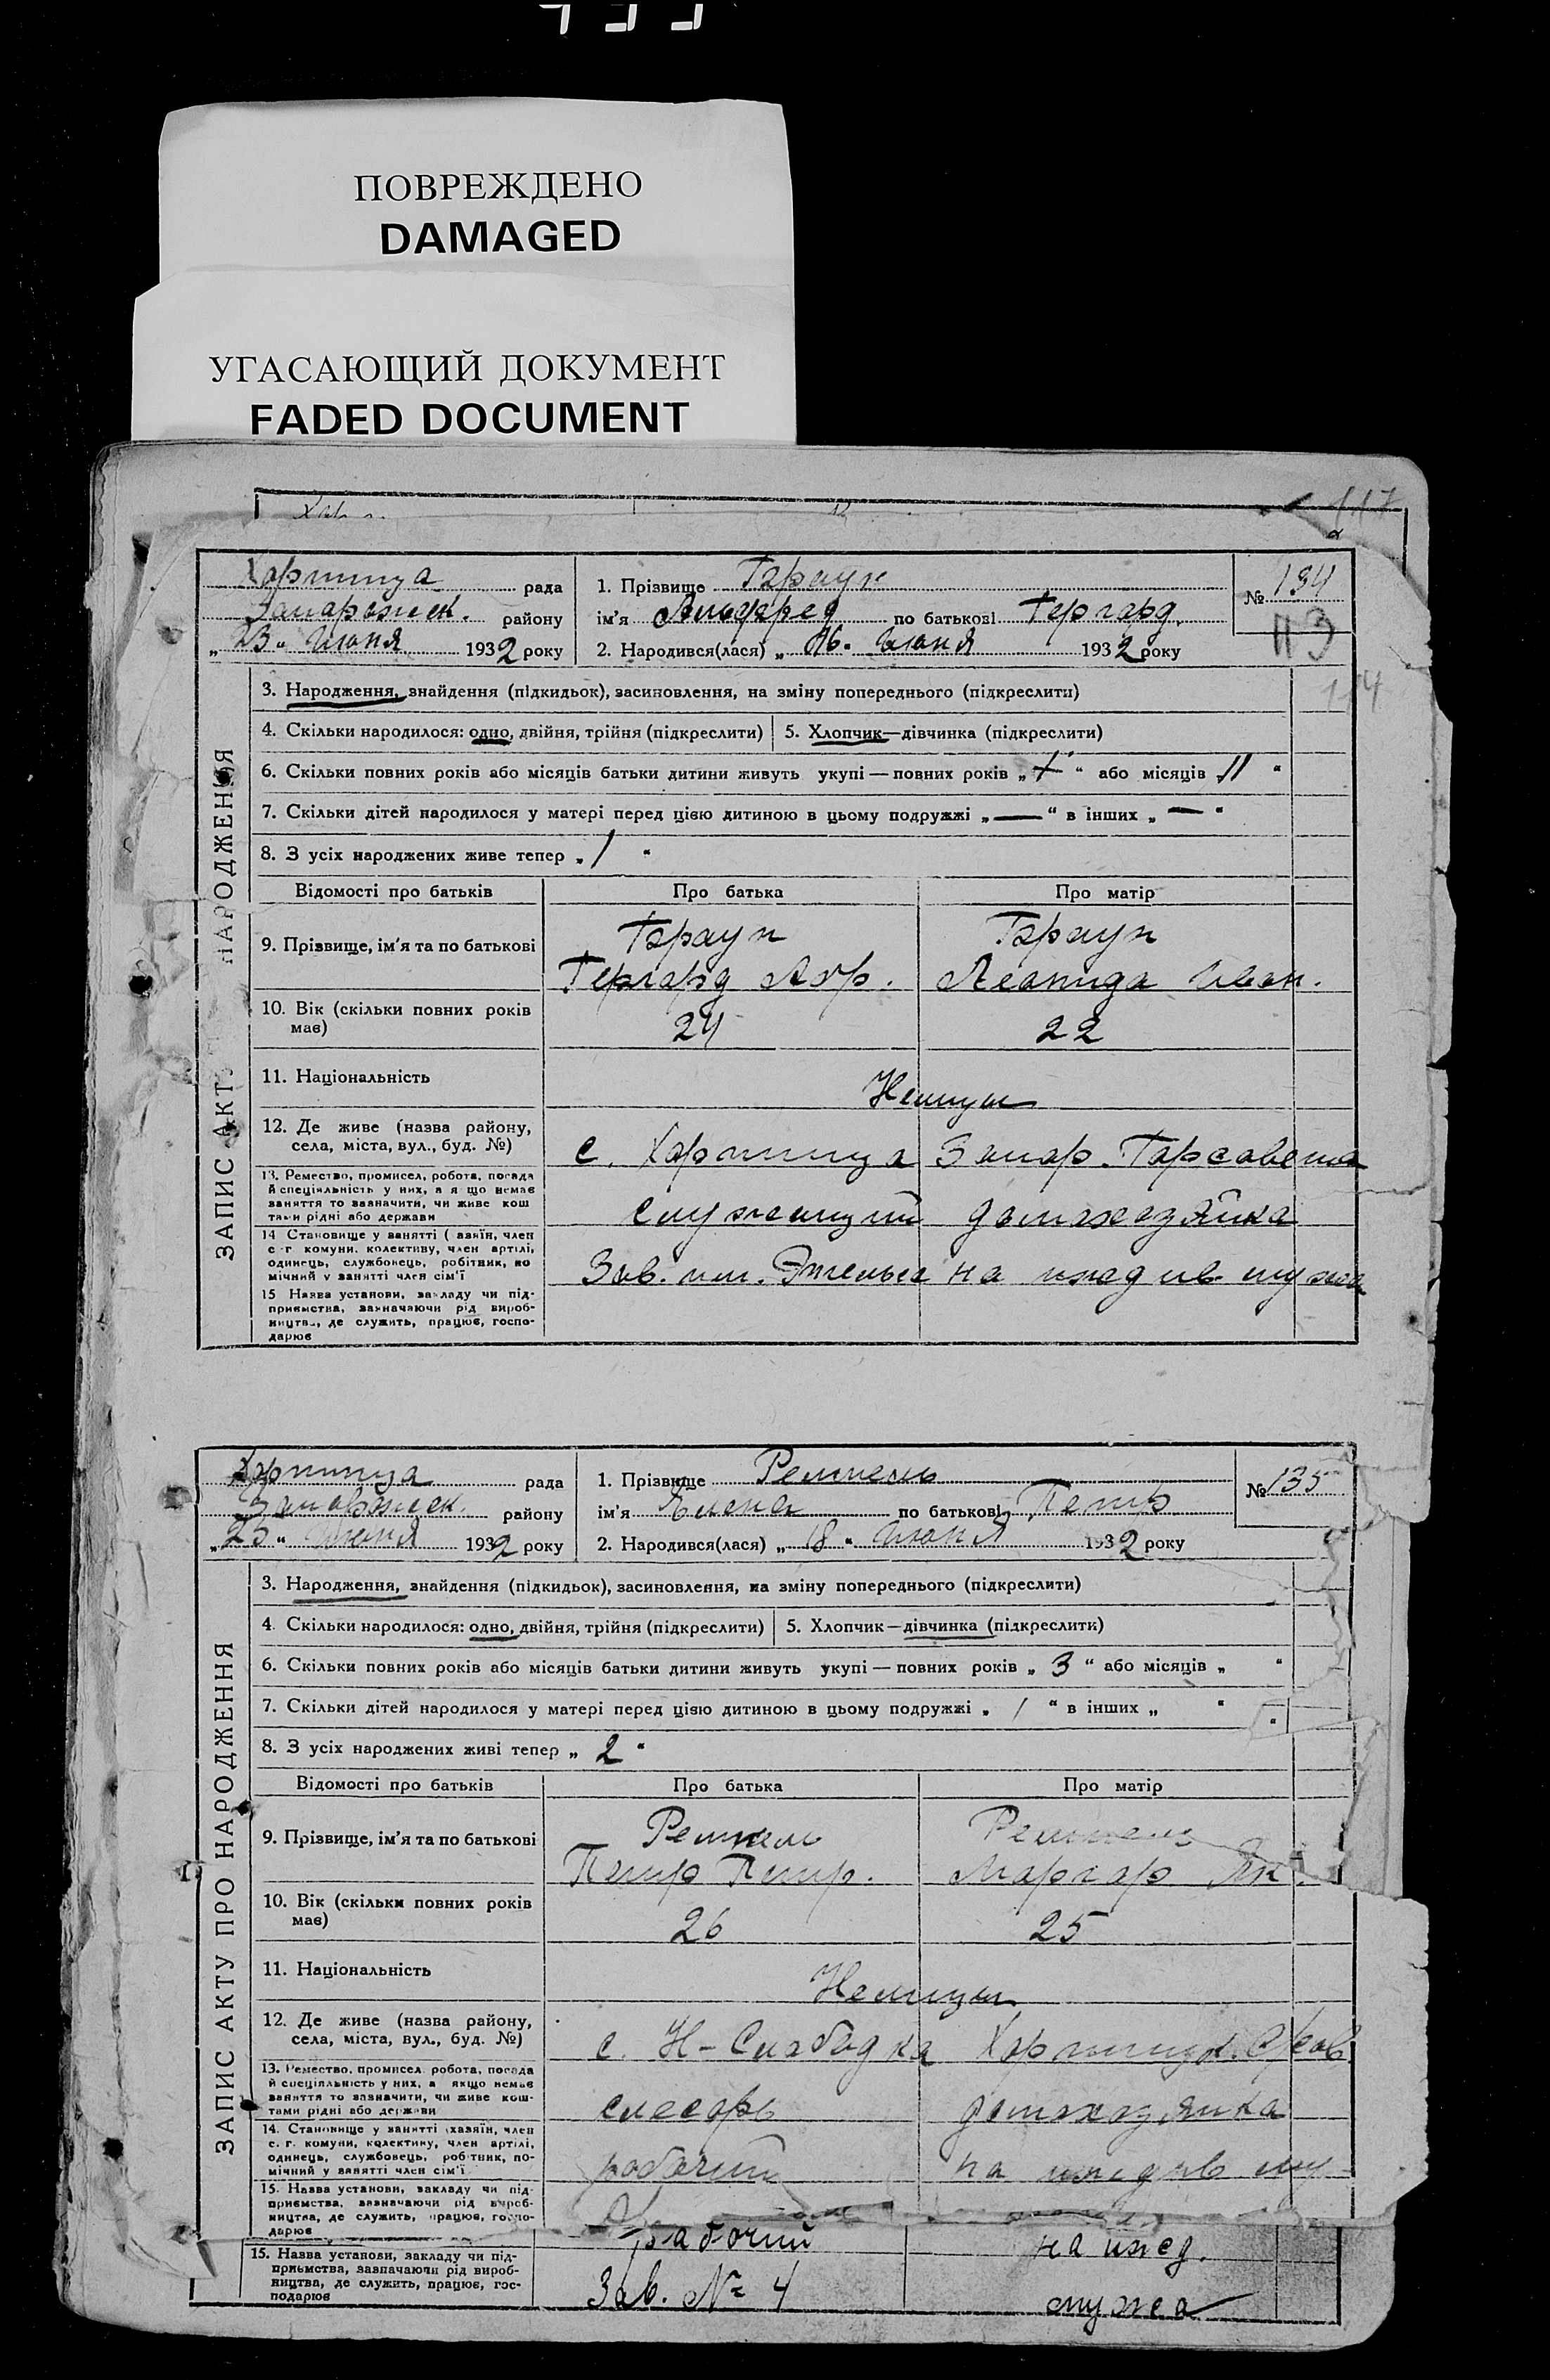 ПОВРЕЖДЕНО
DAMAGED
УГАСАЮЩИЙ ДОКУМЕНТ
FADED DOCUMENT
117
Хортица рада
Запорожск. району
„23“ Июня 1932 року
1. Прізвище
ім'я Альфред по батькові Гергард.
2. Народився(лася) „16. Июня 1932 року
№ 134
113
114
ЗАПИС АКТ НАРОДЖЕННЯ
3. Народження, знайдення (підкидьок), засиновлення, на зміну попереднього (підкреслити)
4. Скільки народилося: одно, двійня, трійня (підкреслити) 5. Хлопчик—дівчинка (підкреслити)
6. Скільки повних років або місяців батьки дитини живуть укупі — повних років „ “ або місяців 11 “
7. Скільки дітей народилося у матері перед цією дитиною в цьому подружжі „—“ в інших „—“
8. З усіх народжених живе тепер „1 “
Відомості про батьків Про батька Про матір
9. Прізвище, ім'я та по батькові
Гергард Абр. Леонида Иван.
10. Вік (скільки повних років
має)
24 22
11. Національність
Немцы
12. Де живе (назва району,
села, міста, вул., буд. №)
с. Хортица Запор. Горсовета
13. Ремество, промисел, робота, посада
й спеціяльність у них, а я що немає
заняття то зазначити, чи живе кош
тами рідні або держави
служащий домохозяйка
14 Становище у занятті ( азяїн, член
с-г комуни, колективу, член артілі,
одинець, службовець, робітник, по
мічний у занятті член сім'ї
Зав. им. Энгельса на иждив. мужа
15 Назва установи, закладу чи під-
приємства, зазначаючи рід вироб-
ництва, де служить, працює, госпо-
дарює
Хортица рада
Запорожск. району
„23“ Июня 1932 року
1. Прізвище Ремпель
ім'я Елена по батькові Петр.
2. Народився(лася) „18“ Июня 1932 року
№ 135
ЗАПИС АКТУ ПРО НАРОДЖЕННЯ
3. Народження, знайдення (підкидьок), засиновлення, на зміну попереднього (підкреслити)
4. Скільки народилося: одно, двійня, трійня (підкреслити) 5. Хлопчик—дівчинка (підкреслити)
6. Скільки повних років або місяців батьки дитини живуть укупі — повних років „3“ або місяців „ “
7. Скільки дітей народилося у матері перед цією дитиною в цьому подружжі „ 1 “ в інших „ “
8. З усіх народжених живі тепер „ 2 “
Відомості про батьків Про батька Про матір
Ремпель Ремпель
9. Прізвище, ім'я та по батькові
Петр Петр. Маргар Як.
10. Вік (скільки повних років
має)
26 25
11. Національність
Немцы
12. Де живе (назва району,
села, міста, вул., буд. №)
с. Н-Слободка Хортицк.
13. Ремество, промисел робота, посада
й спеціяльність у них, а якщо немає
заняття то зазначити, чи живе кош-
тами рідні або держави
слесарь домохозяйка
14. Становище у занятті (хазяїн, член
с. г. комуни, колективу, член артілі,
одинець, службовець, робітник, по-
мічний у занятті член сім'ї
рабочий на иждив му
15. Назва установи, закладу чи під-
приємства, зазначаючи рід вироб-
ництва, де служить, працює, госпо-
дарює
рабочий на ижд.
15. Назва установи, закладу чи під-
приємства, зазначаючи рід вироб-
ництва, де служить, працює, гос-
подарює
Зав. № 4 мужа